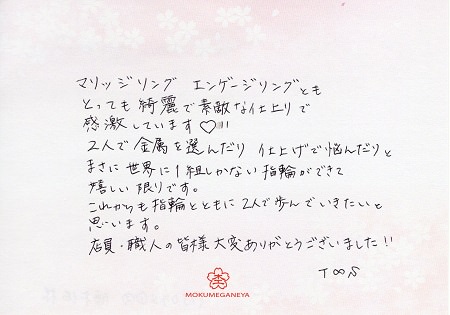 マリッジリング エンゲージリングとも
とっても綺麗で素敵な仕上りで
感激しています♡!!
2人で金属を選んだり 仕上げで悩んだりと
まさに世界に1組しかない指輪ができて
嬉しい限りです。
これからも指輪とともに2人で歩んでいきたいと
思います。
店員・職人の皆様大変ありがとうございました!!
T∞S
MOKUMEGANEYA